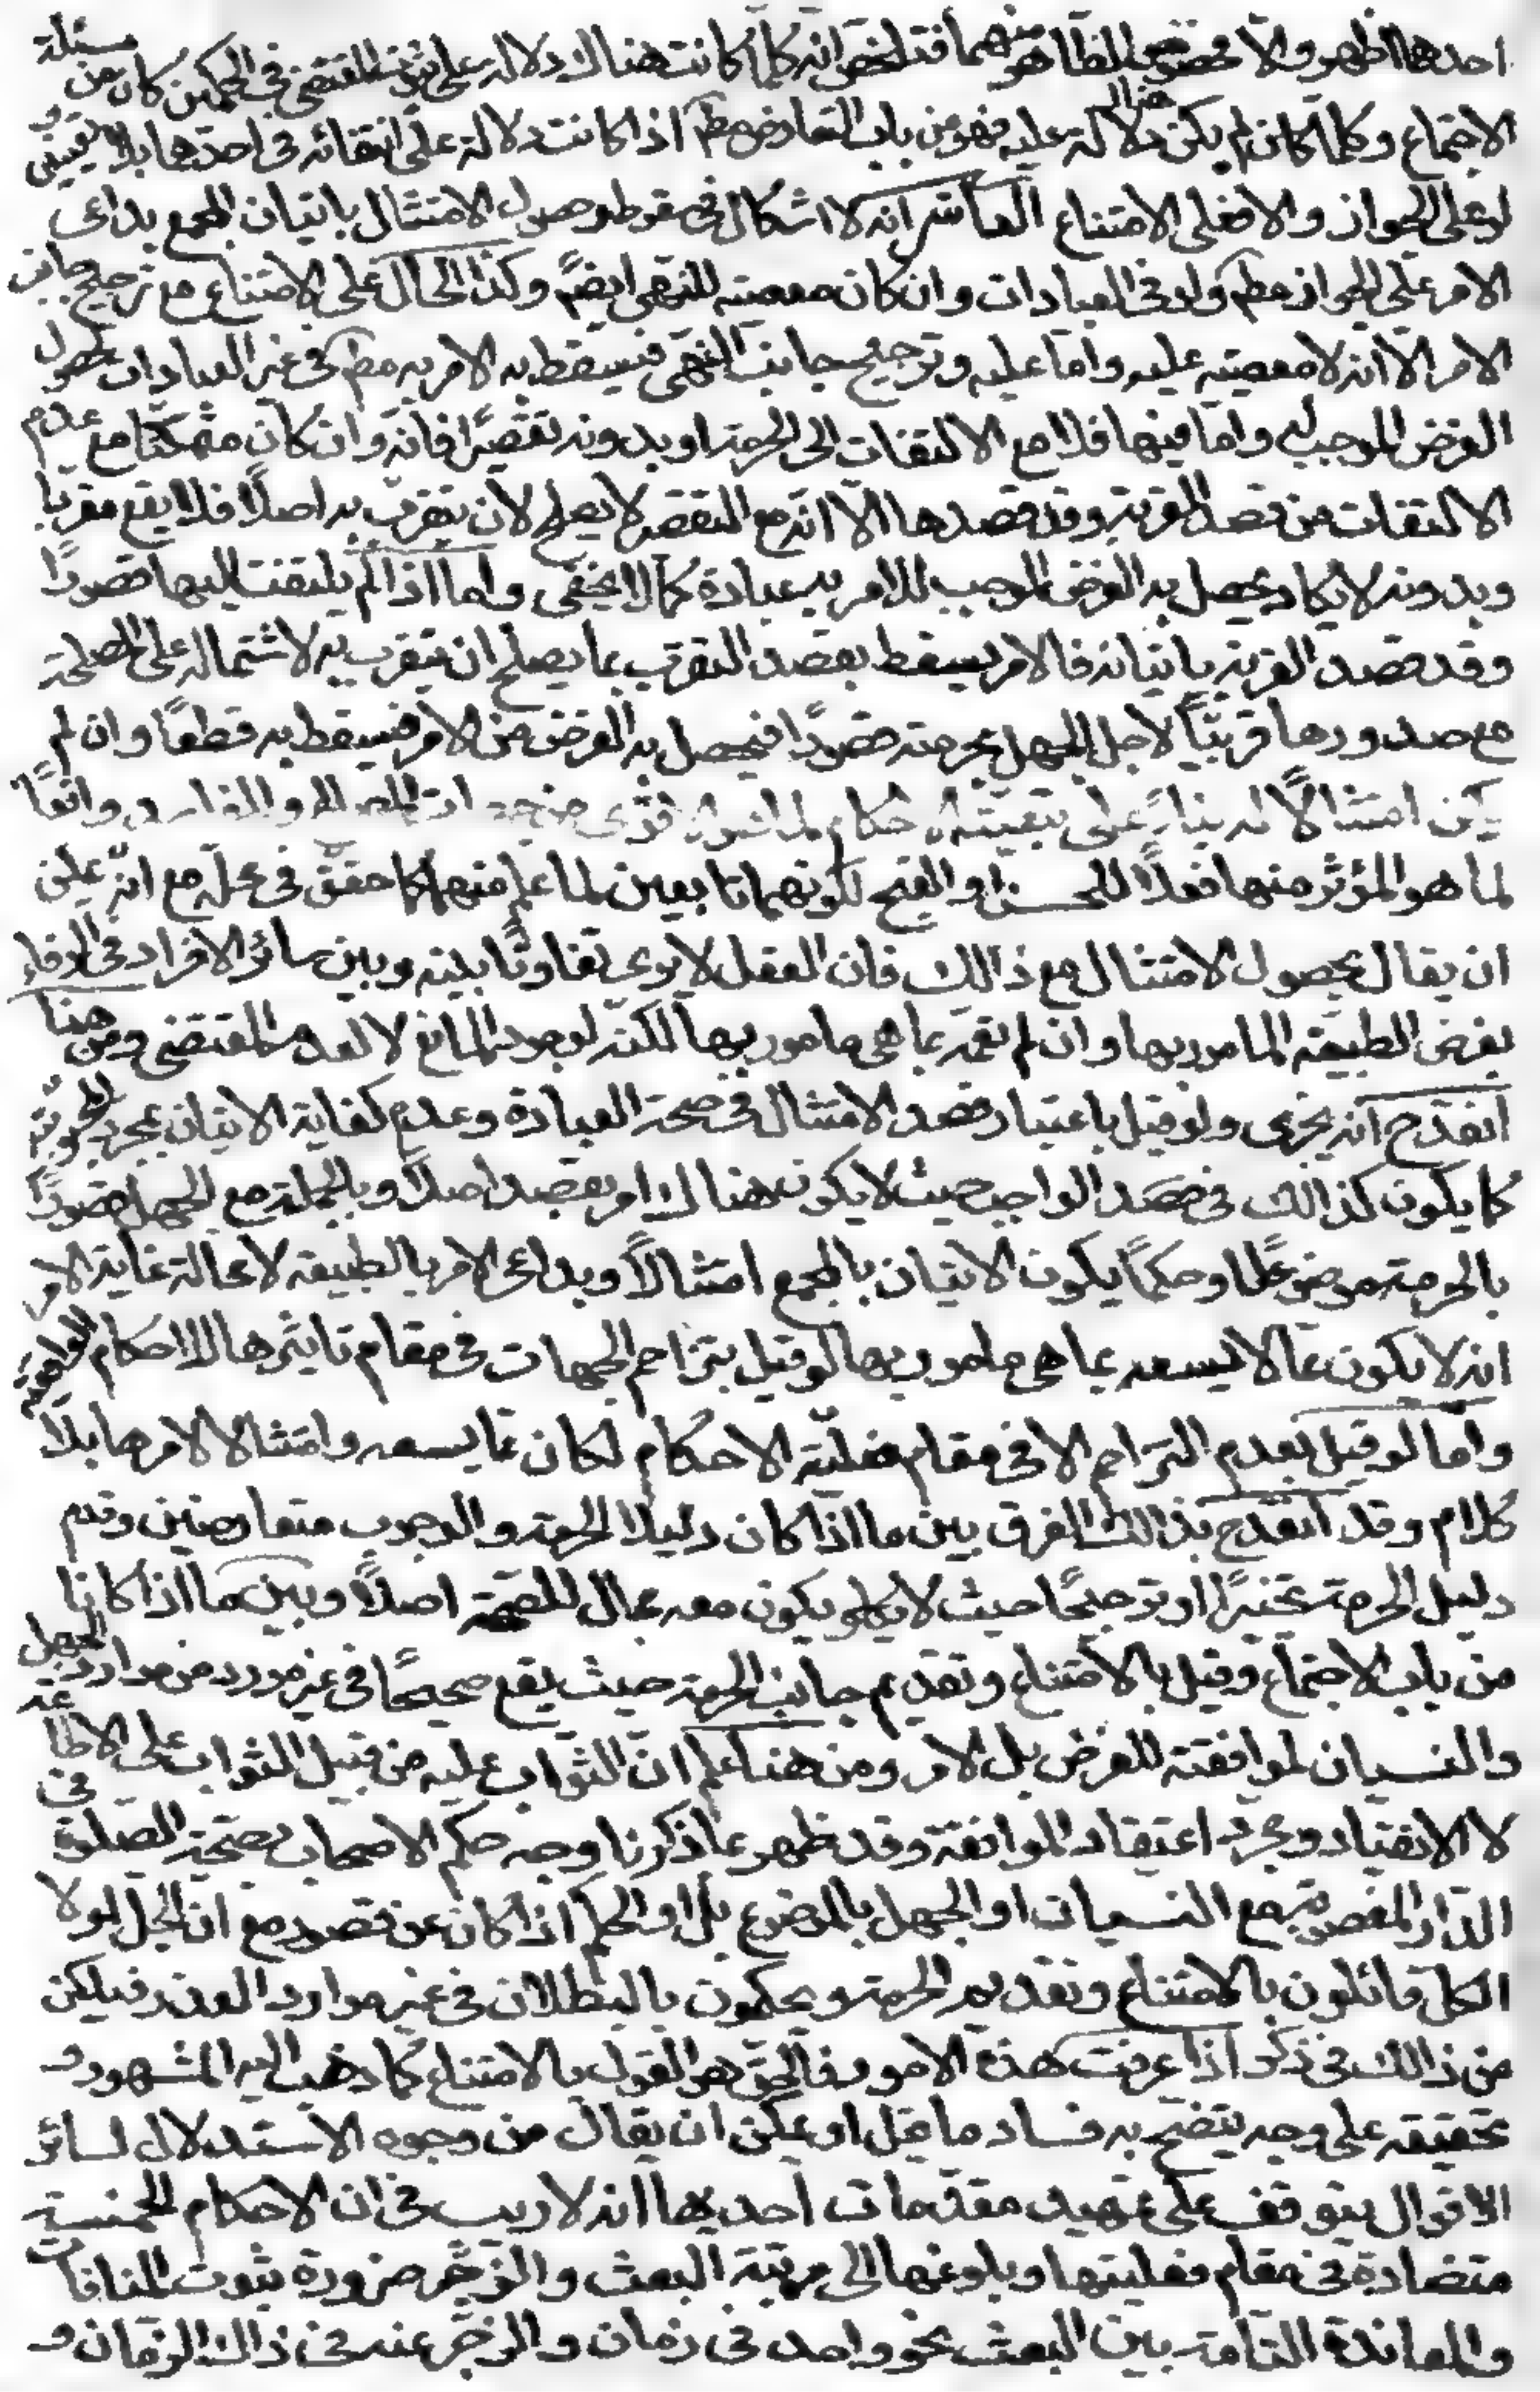 احدهما اظهر والا فخصوص الظاهر منهما فتلخص انه كلما كانت هناك دلالة على ثبوت المقتضى في الحكمين كان من مسئلة
الاجتماع وكلما كان لم يكن هناك دلالة عليه فهو من باب التعارض مط اذا كانت دلالة على انتفائه في احدهما بلا تعيين و
لو على الجواز والا فعلى الامتناع العاشر انه لا اشكال في سقوط وحصول الامتثال باتيان المجمع بداعى
الامر على الجواز مط ولو في العبادات وان كان معصية للنهى ايضً وكذا الحال على الامتناع مع ترجيح جانب
الامر الا انه لا معصية عليه واما عليه وترجيح جانب النهى فيسقط به الامر به مط في غير العبادات لحصول
الغرض الموجب له واما فيها فلا مع الالتفات الى الحرمة او بدونه تقصيرًا فانه وان كان متمكنا مع عدم
الالتفات من قصد القربة وقد قصدها الا انه مع التقصير لا يصلح لان يتقرب به اصلًا فلا يقع مقربا
وبدونه لا يكاد يحصل به الغرض الموجب للامر به عبادة كما لا يخفى واما اذا لم يلتفت اليها قصورًا
وقد قصد القربة باتيانه فالامر يسقط بقصد التقرب بما يصلح ان يتقرب به لاشتماله على المصلحة
مع صدورها قربيًّا لاجل الجهل بحرمته قصورًا فيحصل به الغرض من الامر فيسقط به قطعًا وان لم
يكن امتثالًا له بناءً على تبعية الاحكام لما هو الاقوى من جهات المصالح والمفاسد واقعًا
لما هو المؤثر منها فعلًا للحسن او القبح لكونهما تابعين لما علم منهما كما حقق في محله مع انه يمكن
ان يقال بحصول الامتثال مع ذالك فان العقل لا يرى تفاوتًا بينه وبين سائر الافراد في الوفاء
بغرض الطبيعة المامور بها وان لم تعمه بما هى مامور بها لكنه لوجود المانع لا لعدم المقتضى ومن هنا
انقدح انه يجزى ولو قيل باعتبار قصد الامتثال في صحة العبادة وعدم كفاية الاتيان بمجرد المحبوبية
كما يكون كذالك في ضد الواجب حيث لا يكون هناك امر يقصد اصلًا وبالجملة مع الجهل قصورًا
بالحرمة موضوعًا او حكمًا يكون الاتيان بالمجمع امتثالًا وبداعى الامر بالطبيعة لا محالة غاية الامر
انه لا يكون مما لا يسعه بما هى مامور بها لو قيل بتزاحم الجهات في مقام تاثيرها للاحكام الواقعية
واما لو قيل بعدم التزاحم الا في مقام فعلية الاحكام لكان مما يسعه وامتثالا لامرها بلا
كلام وقد انقدح بذالك الفرق بين ما اذا كان دليلا الحرمة والوجوب متعارضين وقدم
دليل الحرمة تخييرًا او ترجيحًا حيث لا يكون معه مجال للصحة اصلًا وبين ما اذا كانا
من باب الاجتماع وقيل بالامتناع وتقديم جانب الحرمة حيث يقع صحيحًا في غير مورد من موارد الجهل
والنسيان لموافقته للغرض بل الامر ومن هنا علم ان الثواب عليه من قبيل الثواب على الاطاعة
لا الانقياد ومجرد اعتقاد الموافقة وقد ظهر بما ذكرنا وجه حكم الاصحاب بصحة الصلوة في
الدار المغصوبة مع النسيان او الجهل بالموضوع بل او الحكم اذا كان عن قصور مع ان الجل لولا
الكل قائلون بالامتناع وتقديم الحرمة ويحكمون بالبطلان في غير موارد العذر فيلكن
من ذالك في ذكر اذا عرفت هذه الامور فالحق هو القول بالامتناع كما ذهب اليه المشهور و
تحقيقه على وجه يتضح به فساد ما قيل او يمكن ان يقال من وجوه الاستدلال لسائر
الاقوال يتوقف على تمهيد مقدمات احديها انه لا ريب في ان الاحكام الخمسة
متضادة في مقام فعليتها وبلوغها الى مرتبة البعث والزجر ضرورة ثبوت المنافات
والمعاندة التامة بين البعث نحو واحد في زمان والزجر عنه في ذاك الزمان و